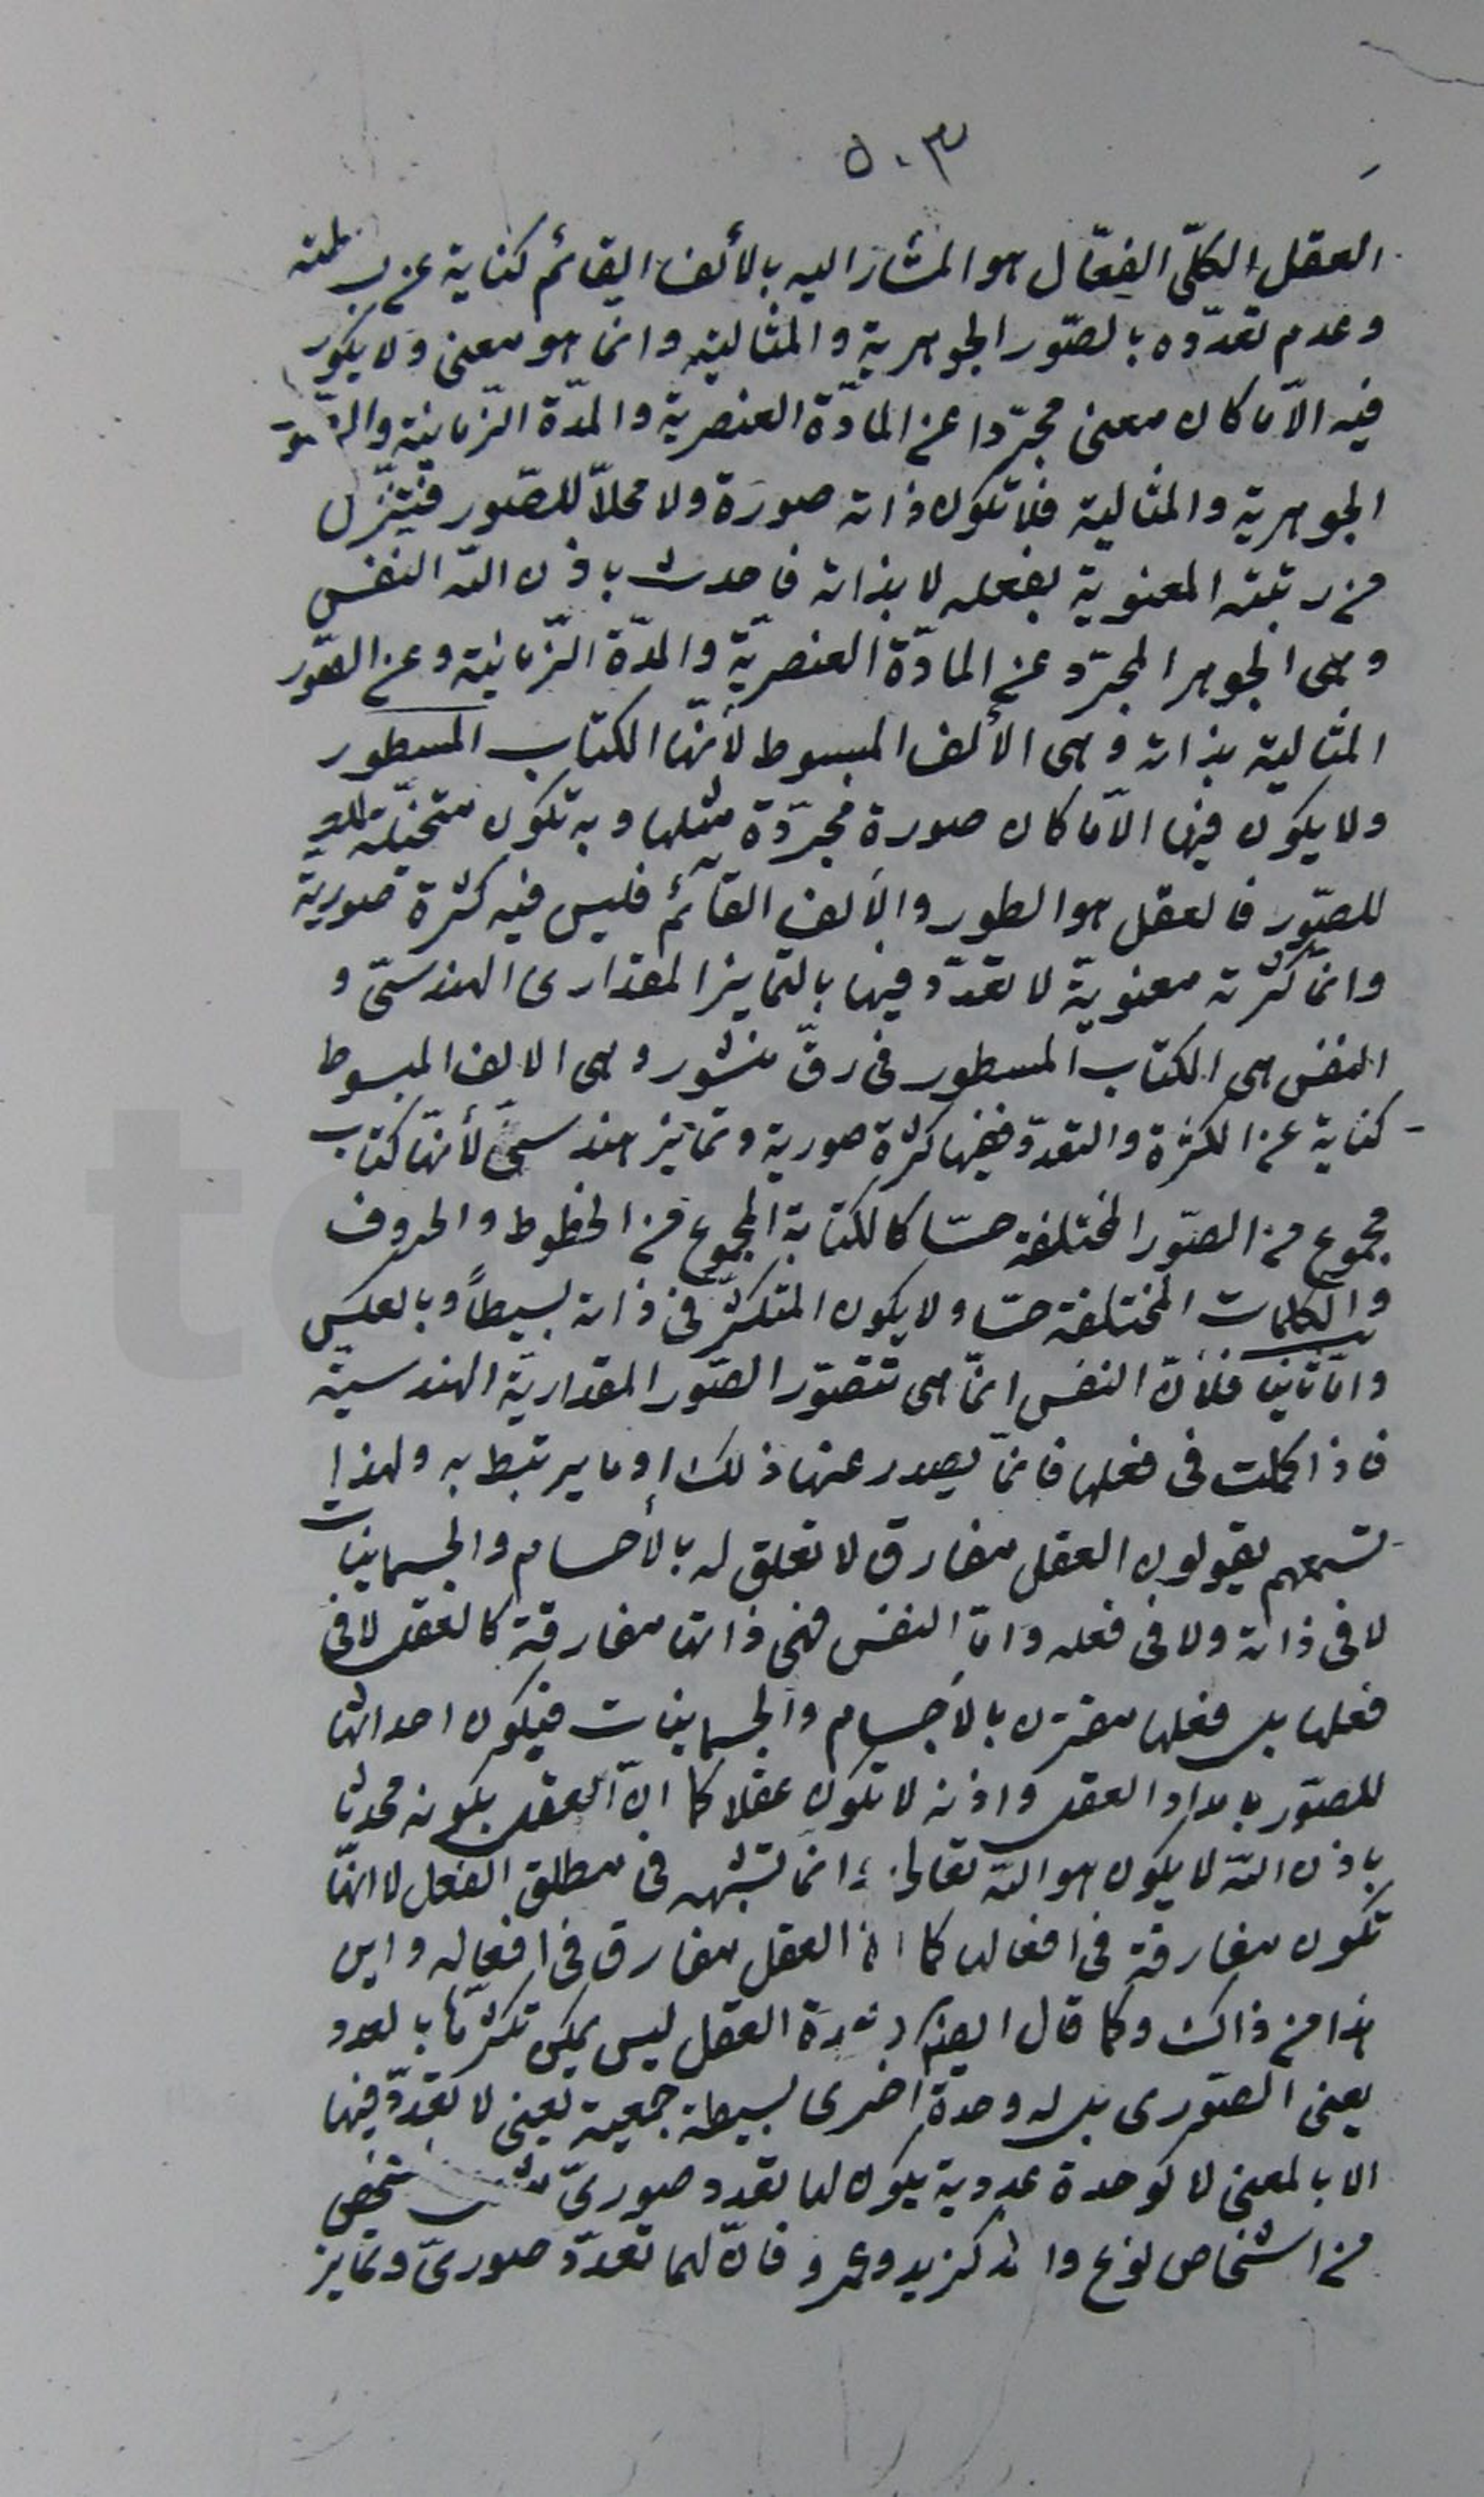 ٥٠٣
العقل الكلّى الفعّال هو المشار اليه بالألف القائم كناية عن
وعدم تعدّده بالصّور الجوهرية والمثالية وانما هو معنى ولا يكون
فيه الّا ما كان معنى مجرّدا عن المادّة العنصرية والمدّة الزّمانية
الجوهرية والمثالية فلا تكون ذاته صورة ولا محلاّ للصّور فتنزّل
من رتبته المعنوية بفعله لا بذاته فاحدث باذن اللّه النفس
وهى الجوهر المجرّد عن المادّة العنصريّة والمدّة الزّمانية وعن الصّور
المثالية بذاته وهى الألف المبسوط لأنّها الكتاب المسطور
ولا يكون فيها الّا ما كان صورة مجرّدة مثلها وبه تكون متخيّلة
للصّور فالعقل هو الطور والألف القائم فليس فيه كثرة صورية
وانّما كثرته معنويّة لا تعدّد فيها بالتمايز المقدارى الهندسىّ و
النفس هى الكتاب المسطور فى رقّ منشور وهى الالف المبسوط
كناية عن الكثرة والتعدّد ففيها كثرة صورية وتمايز هندسىّ لأنّها كتاب
مجموع من الصّور المختلفة حسّا كالكتابة المجموع من الخطوط والحروف
والكلمات المختلفة حسّا ولا يكون المتكثّر فى ذاته بسيطاً وبالعكس
وامّا ثانيا فلأنّ النفس انّما هى تتصوّر الصّور المقدارية الهندسية
فاذا كملت فى فعلها فانمّا يصدر عنها ذلك او ما يرتبط به ولهذا
تسمعهم يقولون العقل مفارق لا تعلق له بالأجسام والجسمانيات
لا فى ذاته ولا فى فعله وامّا النفس فهى ذاتها مفارقة كالعقل لا فى
فعلها بل فعلها مقترن بالأجسام والجسمانيات فيكون احداثها
للصّور بامداد العقل واذنه لا تكون عقلا كما انّ العقل بكونه محدثا
باذن اللّه لا يكون هو اللّه تعالى وانمّا تشبهه فى مطلق الفعل لا انّها
تكون مفارقة فى افعالها كما انّ العقل مفارق فى افعاله واين
هذا من ذاك وكما قال ايضا وحدة العقل ليس يمكن تكثّرها بالعدد
يعنى الصّورى بل له وحدة اخرى بسيطة جمعية يعنى لا تعدّد فيها
الا بالمعنى لا كوحدة عددية يكون لها تعدد صورىّ شخص
من اشخاص نوع واحد كزيد وعمرو فانّ لهما تعدّد صورىّ وتمايز